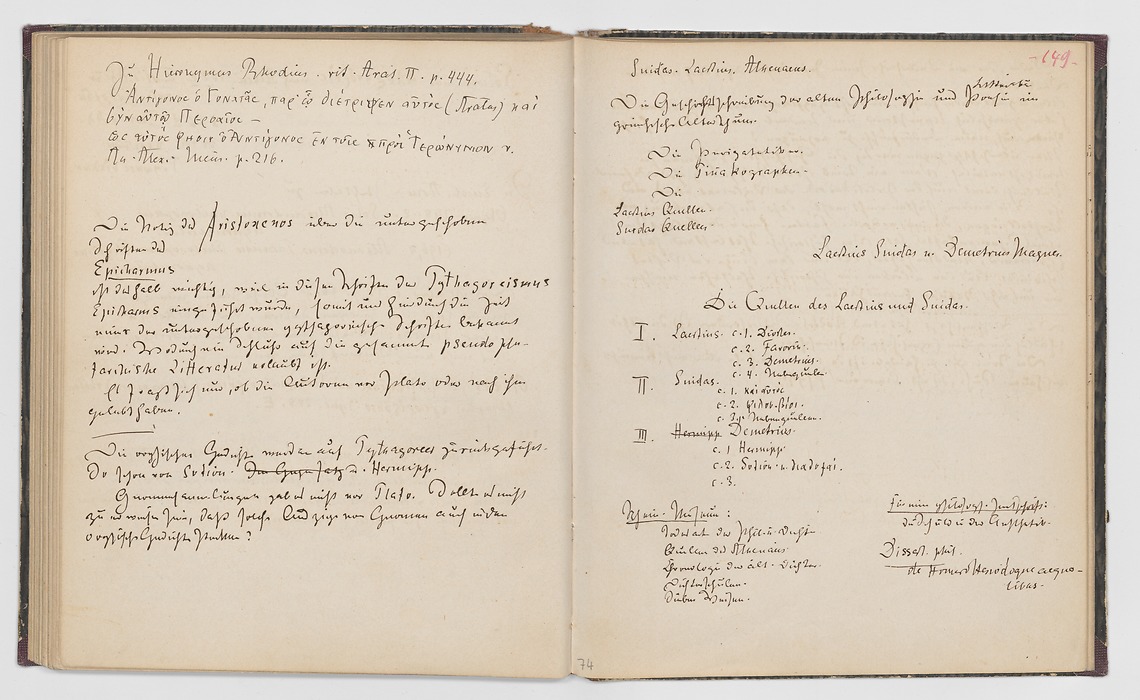 Zu Hieronymus Rhodius. vit. Arat. II. p. 444.
Ἀντίγονος ὁ Γονατᾶς, παρ' ᾧ διέτριψεν αὐτὸς (Aratos) καὶ
σὺν αὐτῷ Περσαῖος —
ὡς αὐτός φησιν ὁ Ἀντίγονος ἐν τοῖς πρὸς Ἱερώνυμον v.
p. 216.
Die Notiz des Aristoxenos über die untergeschobenen
Schriften des
Epicharmus
ist deshalb wichtig, weil in diesen Schriften der Pythagoreismus
Epicharms eingeführt wurde, somit uns hierdurch die Zeit
einer der untergeschobenen pythagorischen Schriften bekannt
wird. Wodurch ein Schluß auf die gesammte pseudo
Litteratur erlaubt ist.
Es fragt sich nur, ob die Autoren vor Plato oder nach ihm
gelebt haben.
Die orphischen Gedichte werden auf Pythagoreer zurückgeführt.
So schon von Sotion. u. Hermipp.
Gnomensammlungen gab es nicht vor Plato. Sollte es nicht
zu erweisen sein, daß solche Auszüge von Gnomen auch in den
orphischen Gedichten stecken?
-149-
Suidas. Laertius. Athenaeus.
Die Geschichtschreibung der alten Philosophie und Poesie im
griechischen Alterthum.
Die Peripatetiker.
Die Pinakographen.
Die
Laertius Quellen.
Suidas Quellen.
Laertius Suidas u. Demetrius Magnes.
Die Quellen des Laertius und Suidas.
I. Laertius. c. 1. Diocles.
c. 2. Favorin.
c. 3. Demetrius.
c. 4. Nebenquellen
II. Suidas.
c. 1.
c. 2.
c. 3. Nebenquellen.
III. Hermipp Demetrius.
c. 1 Hermipp
c. 2. Sotion u. διαδοχαί.
c. 3.
Rhein. Museum:
Für eine philosoph. Zeitschrift:
Quellen des Athenaeus
Chronologie der ält. Dichter.
Dichterschulen.
Sieben Weisen.
Dissert. phil.
de Homero Hesiodoque aequa-
libus.
74